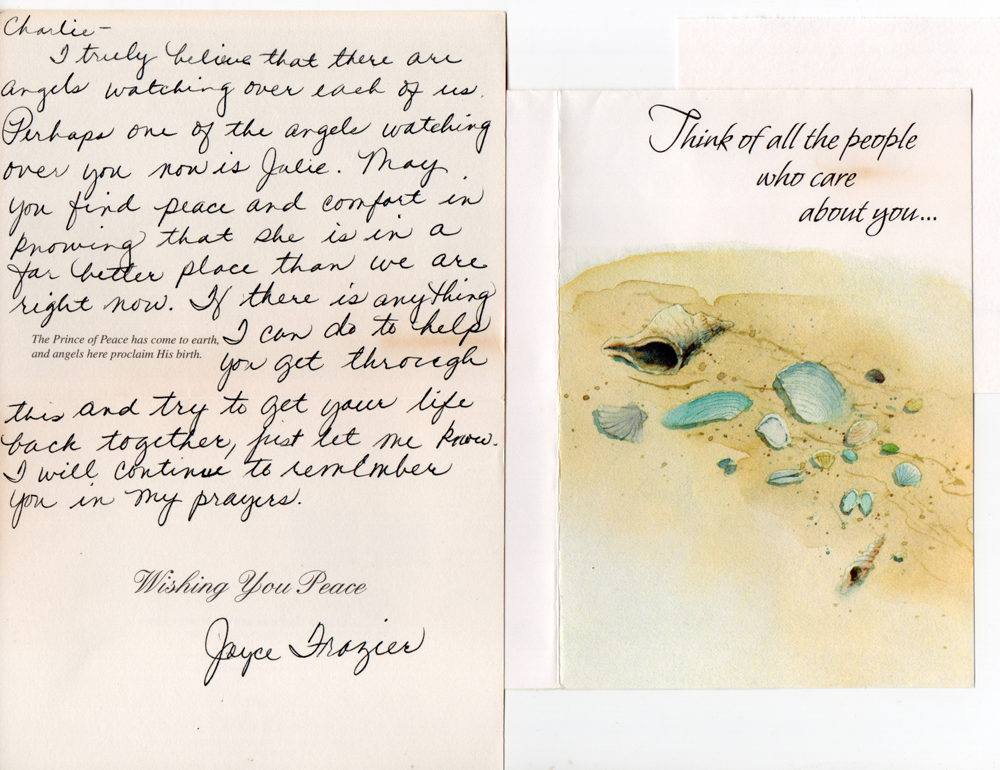 Charlie-
I truly believe that there are
angels watching over each of us.
Perhaps one of the angels watching
over you now is Julie. May
you find peace and comfort in
knowing that she is in a
far better place than we are
right now. If there is anything
The Prince of Peace has come to earth,
and angels here proclaim His birth.
I can do to help
you get through
this and try to get your life
back together, just let me know.
I will continue to remember
you in my prayers.
Wishing You Peace
Joyce Frazier
Think of all the people
who care
about you...